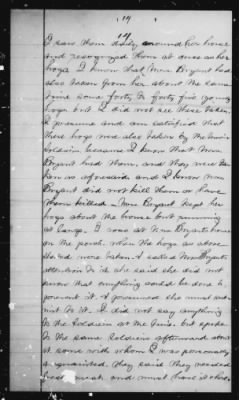 14
14
I saw them daily around her house
and recognized them at once as her
hogs. I know that Mrs Bryant had
also taken from her about the same
time some forty to forty five young
hogs but I did not see these taken.
I presume and am satisfied that
these hogs were also taken by the Union
Soldiers because I know that Mrs
Bryant had them, and they were ta-
ken as aforesaid and I know Mrs
Bryant did not kill them or have
them killed. Mrs Bryant kept her
hogs about the house but running
at large. I was at Mrs Bryants house
on the porch when the hogs as above
stated were taken. I called Mrs Bryants
attention to it she said she did not
know that anything could be done to
prevent it. I presumed she must sub-
mit to it. I did not say anything
to the Soldiers at the time. but spoke
to the same Soldiers afterward about
it some with whom I was personally
acquainted. they said they needed
fresh meat and must have it &